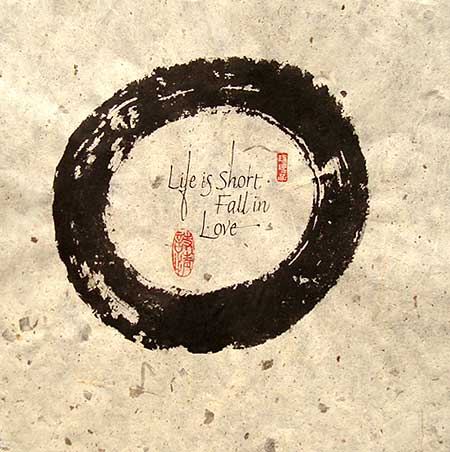 Life is Short.
Fall in
Love